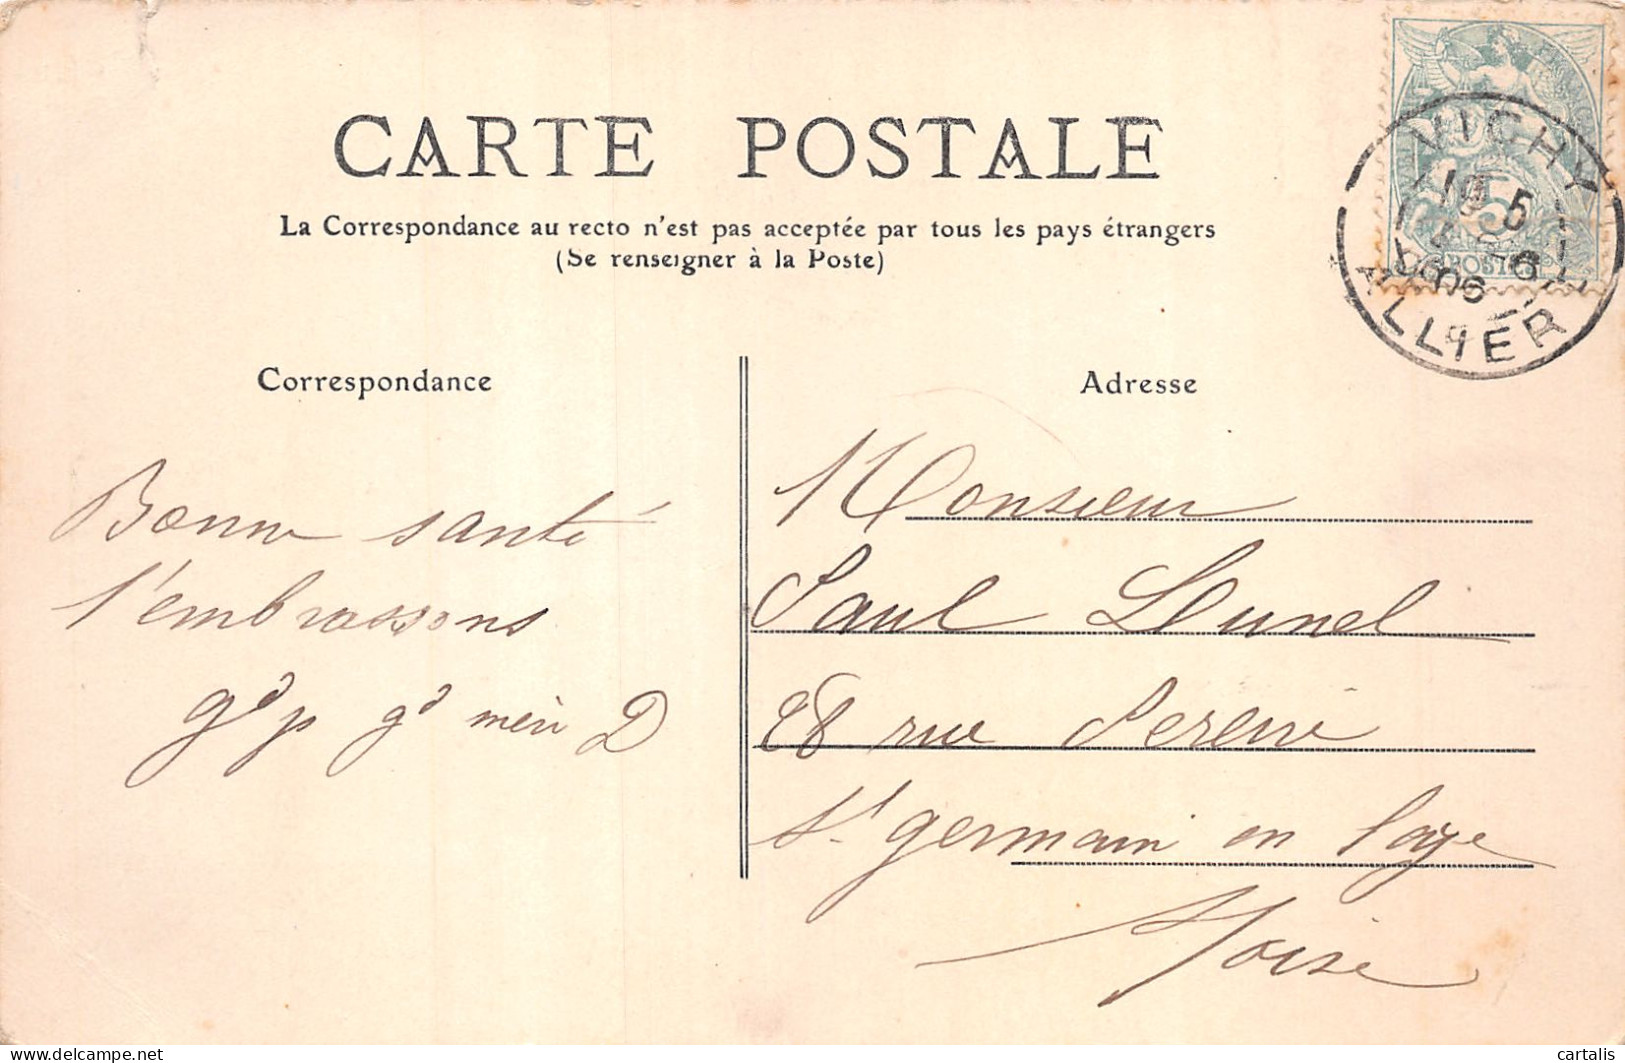 CARTE POSTALE
La Correspondance au recto n'est pas acceptée par tous les pays étrangers
(Se renseigner à la Poste)
VICHY
5
06
ALLIER
5
POSTES
Correspondance
Adresse
Bonne santé
t'embrassons
gd p gd mère D
Monsieur
Paul Dunel
28 rue
St germain en Laye
delcampe.net
cartalis